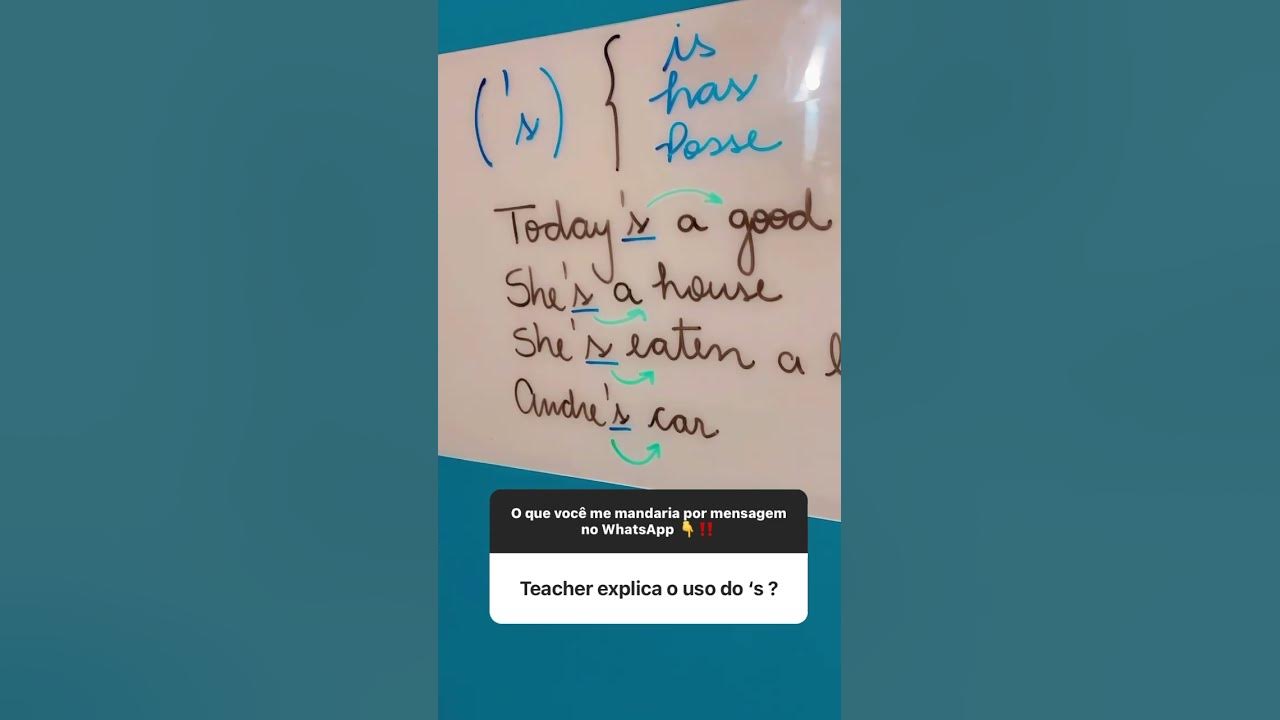 ('s) { is
has
Posse
Today's a good
She's a house
She's eaten a l
Andre's car
O que você me mandaria por mensagem
no WhatsApp 👇‼️
Teacher explica o uso do ‘s ?